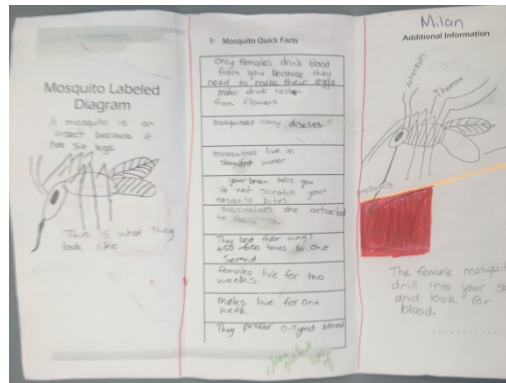 Mosquito Labeled
Diagram
A mosquito is an
insect because it
has six legs
This is what they
look like
Mosquito Quick Facts
Only females drink blood
from you because they
need to make their eggs
males drink
from flowers
mosquitoes carry diseses
mosquitoes live in
water
your brain tells you
to not scratch your
bites
are
to
They beat their wings
450-600 times in one
Second
females live for two
weeks.
males live for one
week.
They prefer O-Typed blood
Milan
Additional Information
Thorax
The female mosquito
drill into your
and look for
blood.